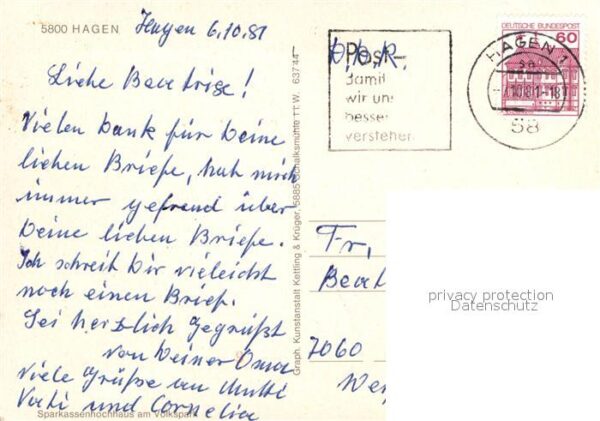 5800 HAGEN
Hagen 6.10.81
Liebe Beatrise!
Vielen Dank für Deine
lieben Briefe, hab mich
immer gefreud über
Deine lieben Briefe.
Ich schreib Dir vieleicht
noch einen Brief.
Sei herzlich gegrüßt
von Deiner Oma
Viele Grüße an Mutti
Vati und Cornelia
Sparkassenhochhaus am Volkspark
Graph. Kunstanstalt Kettling & Krüger, 5885 Schalksmühle TT W. 637/44
Post-
damit
wir uns
besser
verstehen
DEUTSCHE BUNDESPOST
60
HAGEN 1
58
Fr.
Beat
7060
privacy protection
Datenschutz